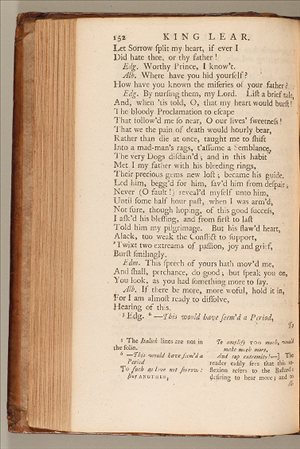 152 KING LEAR.
Let Sorrow ſplit my heart, if ever I
Did hate thee, or thy father!
Edg. Worthy Prince, I know't.
Alb. Where have you hid yourſelf?
How have you known the miſeries of your father?
Edg. By nurſing them, my Lord. Liſt a brief tale,
And, when 'tis told, O, that my heart would burſt!
The bloody Proclamation to eſcape
That follow'd me ſo near, O our lives' ſweetneſs!
That we the pain of death would hourly bear,
Rather than die at once, taught me to ſhift
Into a mad-man's rags, t'aſſume a Semblance,
The very Dogs diſdain'd; and in this habit
Met I my father with his bleeding rings,
Their precious gems new loſt; became his guide,
Led him, begg'd for him, ſav'd him from deſpair;
Never (O fault!) reveal'd myſelf unto him,
Until ſome half hour paſt, when I was arm'd,
Not ſure, though hoping, of this good ſucceſs,
I aſk'd his bleſſing, and from firſt to laſt
Told him my pilgrimage. But his flaw'd heart,
Alack, too weak the Conflict to ſupport,
'Twixt two extreams of paſſion, joy and grief,
Burſt ſmilingly.
Edm. This ſpeech of yours hath mov'd me,
And ſhall, perchance, do good; but ſpeak you on,
You look, as you had ſomething more to ſay.
Alb. If there be more, more woful, hold it in,
For I am almoſt ready to diſſolve,
Hearing of this.
Edg. —This would have ſeem'd a Period,
To
The Italick lines are not in
the folio.
—This would have ſeem'd a
Period
To ſuch as love not ſorrow:
but ANOTHER,
To amplify TOO much, would
make much more,
And top extremity!—] The
reader eaſily ſees that this re-
flexion refers to the Baſtard's
deſiring to hear more; and to